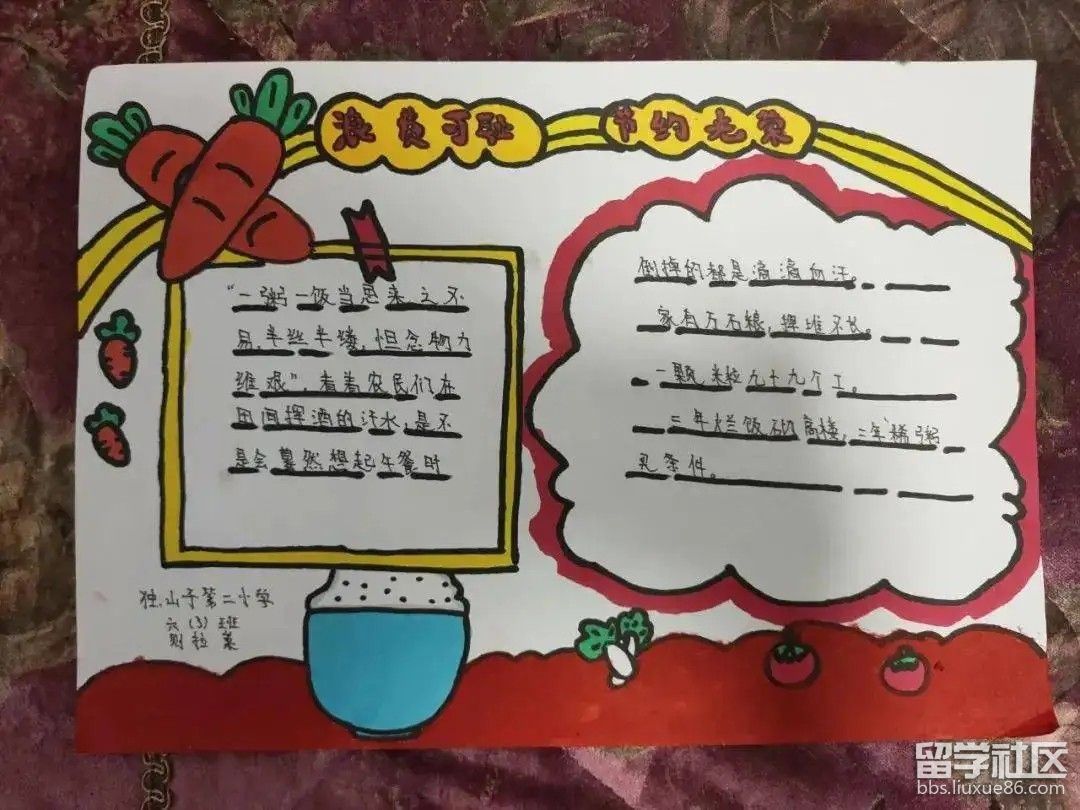 浪费可耻 节约光荣
“一粥一饭当思来之不
易,半丝半缕,恒念物力
维艰”,看着农民们在
田间挥洒的汗水,是不
是会蓦然想起午餐时
倒掉的都是滴滴血汗。
家有万石粮,挥堆不长。
一颗米粒九十九个工。
三年烂饭砌高楼,三年稀粥
买条件。
独山子第二小学
六(3)班
留学社区
bbs.liuxue86.com